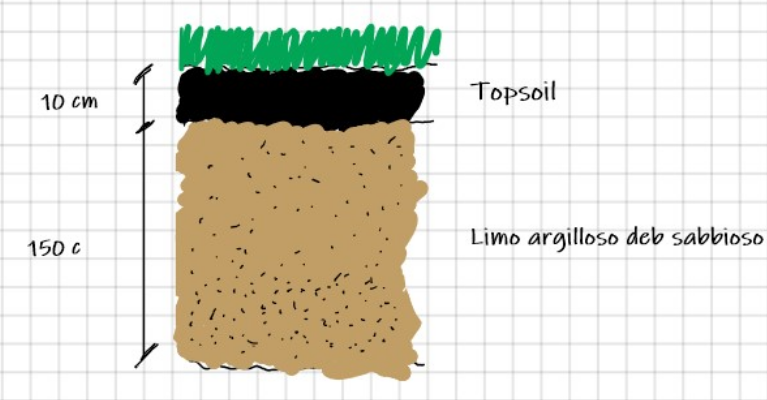 10 cm
Topsoil
150 c
Limo argilloso deb sabbioso